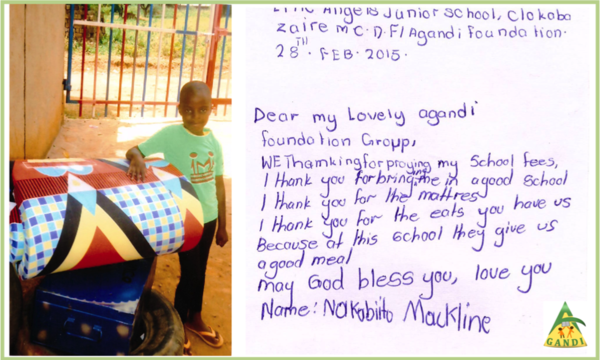 Angels Junior School, Clokobo
Zaire M C.D.F/Agandi foundation.
28TH. FEB. 2015.
Dear my Lovely agandi
foundation Group,
WE Thanking for praying my School fees,
I thank you for bringing me in a good School
I thank you for the mattres
I thank you for the eats you have us
Because at this school they give us
a good meal
may God bless you, love you
Name: Nakabiito Mackline
GANDI